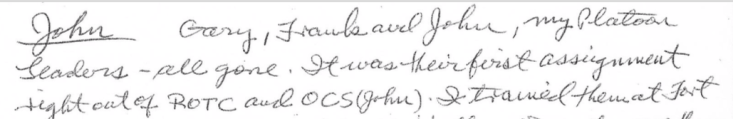 John Gary, Frank and John, my Platoon
leaders - all gone. It was their first assignment
right out of ROTC and OCS (John). I trained them at Fort